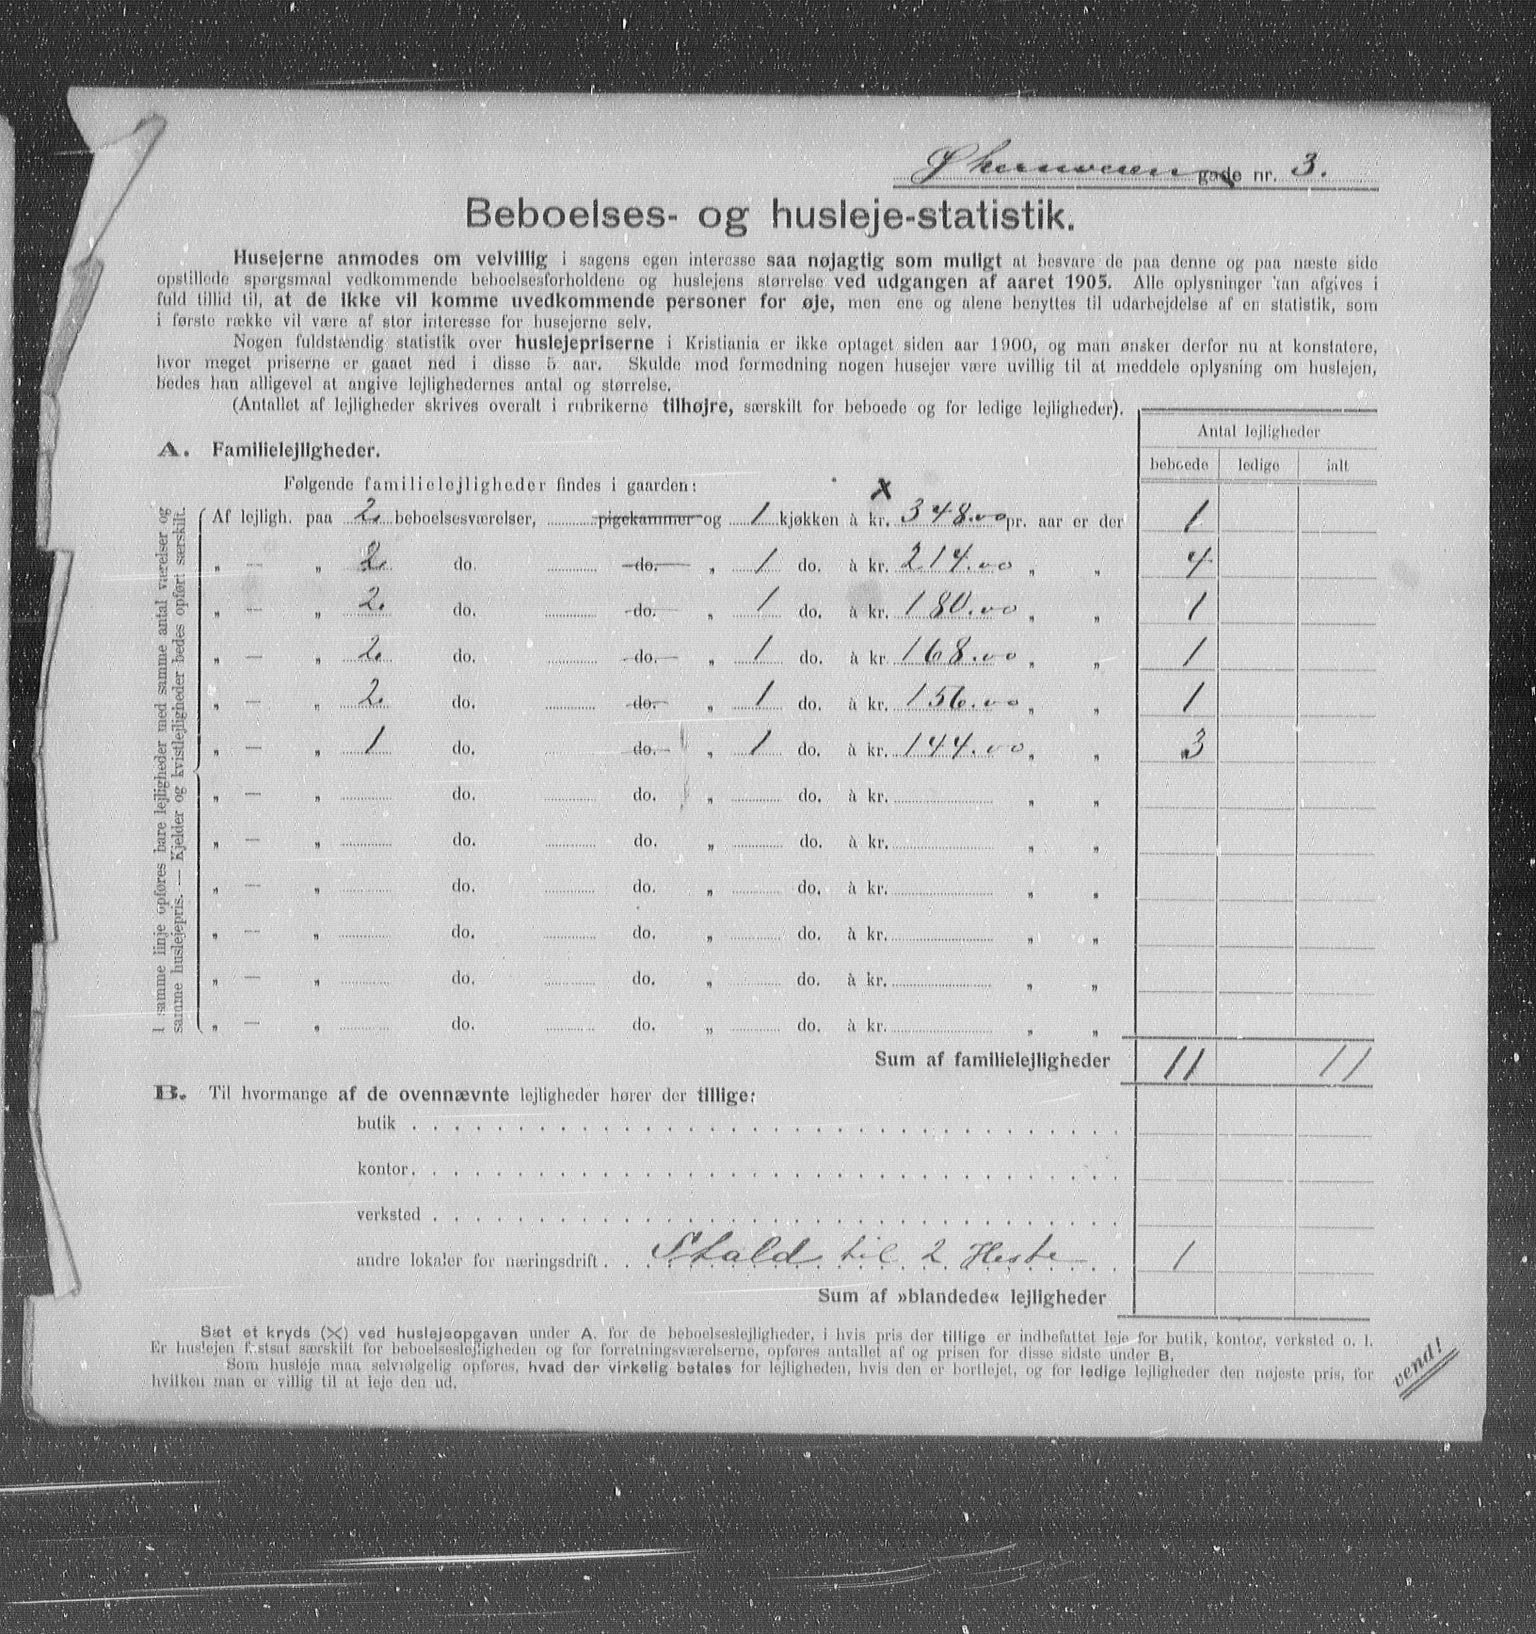 Økernveien gade nr. 3.
Beboelses- og husleje-statistik.
Husejerne anmodes om velvillig i sagens egen interesse saa nøjagtig som muligt at besvare de paa denne og paa næste side
opstillede spørgsmaal vedkommende beboelsesforholdene og huslejens størrelse ved udgangen af aaret 1905. Alle oplysninger kan afgives i
fuld tillid til, at de ikke vil komme uvedkommende personer for øje, men ene og alene benyttes til udarbejdelse af en statistik, som
i første række vil være af stor interesse for husejerne selv.
Nogen fuldstændig statistik over huslejepriserne i Kristiania er ikke optaget siden aar 1900, og man ønsker derfor nu at konstatere,
hvor meget priserne er gaaet ned i disse 5 aar. Skulde mod formodning nogen husejer være uvillig til at meddele oplysning om huslejen,
bedes han alligevel at angive lejlighedernes antal og størrelse.
(Antallet af lejligheder skrives overalt i rubrikerne tilhøjre, særskilt for beboede og for ledige lejligheder).
Antal lejligheder
beboede ledige ialt
A. Familielejligheder.
Følgende familielejligheder findes i gaarden:
I samme linje opføres bare lejligheder med samme antal værelser og
samme huslejepris. — Kjelder og kvistlejligheder bedes opført særskilt.
X
Af lejligh. paa 2 beboelsesværelser, pigekammer og 1 kjøkken à kr. 348.00 pr. aar er der 1
„ — „ 2 do. do. „ 1 do. à kr. 214.00 „ „ 4
„ — „ 2 do. do. „ 1 do. à kr. 180.00 „ „ 1
„ — „ 2 do. do. „ 1 do. à kr. 168.00 „ „ 1
„ — „ 2 do. do. „ 1 do. à kr. 156.00 „ „ 1
„ — „ 1 do. do. „ 1 do. à kr. 144.00 „ „ 3
„ — „ do. do. „ do. à kr. „ „
„ — „ do. do. „ do. à kr. „ „
„ — „ do. do. „ do. à kr. „ „
„ — „ do. do. „ do. à kr. „ „
„ — „ do. do. „ do. à kr. „ „
„ — „ do. do. „ do. à kr. „ „
Sum af familielejligheder 11 11
B. Til hvormange af de ovennævnte lejligheder hører der tillige:
butik
kontor
verksted
andre lokaler for næringsdrift Stald til 2 Heste 1
Sum af »blandede« lejligheder
Sæt et kryds (X) ved huslejeopgaven under A. for de beboelseslejligheder, i hvis pris der tillige er indbefattet leje for butik, kontor, verksted o. l.
Er huslejen fastsat særskilt for beboelseslejligheden og for forretningsværelserne, opføres antallet af og prisen for disse sidste under B.
Som husleje maa selvfølgelig opføres, hvad der virkelig betales for lejligheden, hvis den er bortlejet, og for ledige lejligheder den nøjeste pris, for
hvilken man er villig til at leje den ud.
vend!